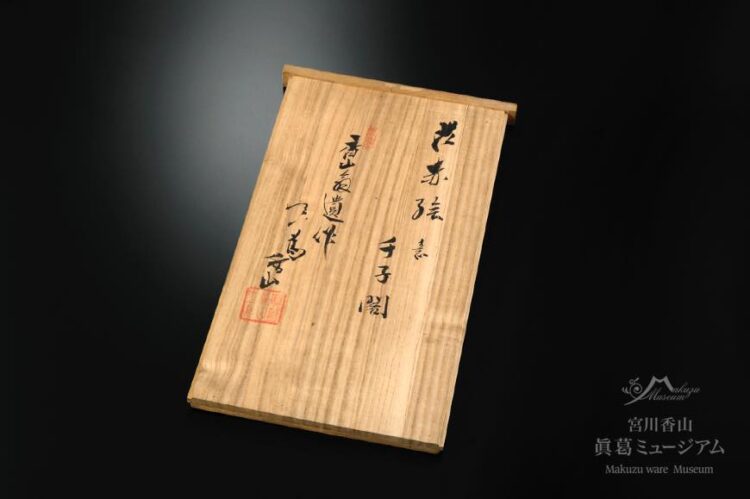 赤絵意
子閣
香山翁遺作
真葛香山
Makuzu
Museum
宮川香山
眞葛ミュージアム
Makuzu ware Museum